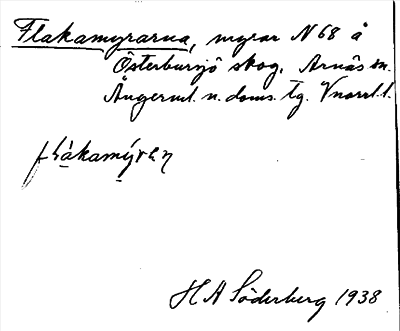 Flakamyrarna, myrar N 68 å
Österbursjö skog, Arnäs sn.
Ångerml. n. doms. tg. Vnorrl. l.
flákamýran
H A Söderberg 1938